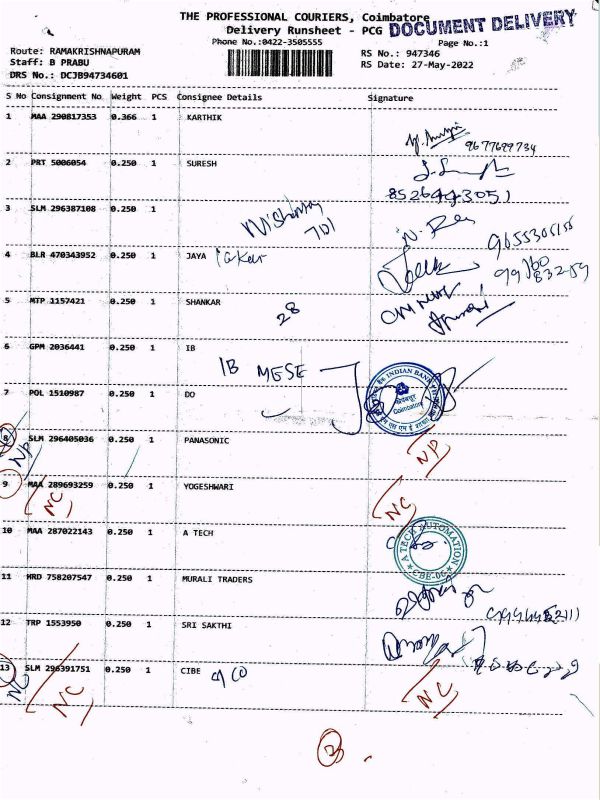 THE PROFESSIONAL COURIERS, Coimbatore
Delivery Runsheet - PCG DOCUMENT DELIVERY
Phone No.:0422-3505555 Page No.:1
Route: RAMAKRISHNAPURAM RS No.: 947346
Staff: B PRABU RS Date: 27-May-2022
DRS No.: DCJB94734601
S No Consignment No Weight PCS Consignee Details Signature
1 MAA 290817353 0.366 1 KARTHIK
9677699734
2 PRT 5006054 0.250 1 SURESH
8526443051
3 SLM 296387108 0.250 1
701
4 BLR 470343952 0.250 1 JAYA
99160
83259
5 MTP 1157421 0.250 1 SHANKAR
28
6 GPM 2036441 0.250 1 IB
IB MESE
INDIAN BANK
Coimbatore
7 POL 1510987 0.250 1 DO
8 SLM 296405036 0.250 1 PANASONIC
NP NP
9 MAA 289693259 0.250 1 YOGESHWARI
NC NC
10 MAA 287022143 0.250 1 A TECH
A TECH AUTOMATION
CBE-06
11 HRD 758207547 0.250 1 MURALI TRADERS
12 TRP 1553950 0.250 1 SRI SAKTHI
13 SLM 296391751 0.250 1 CIBE
NC NC NC